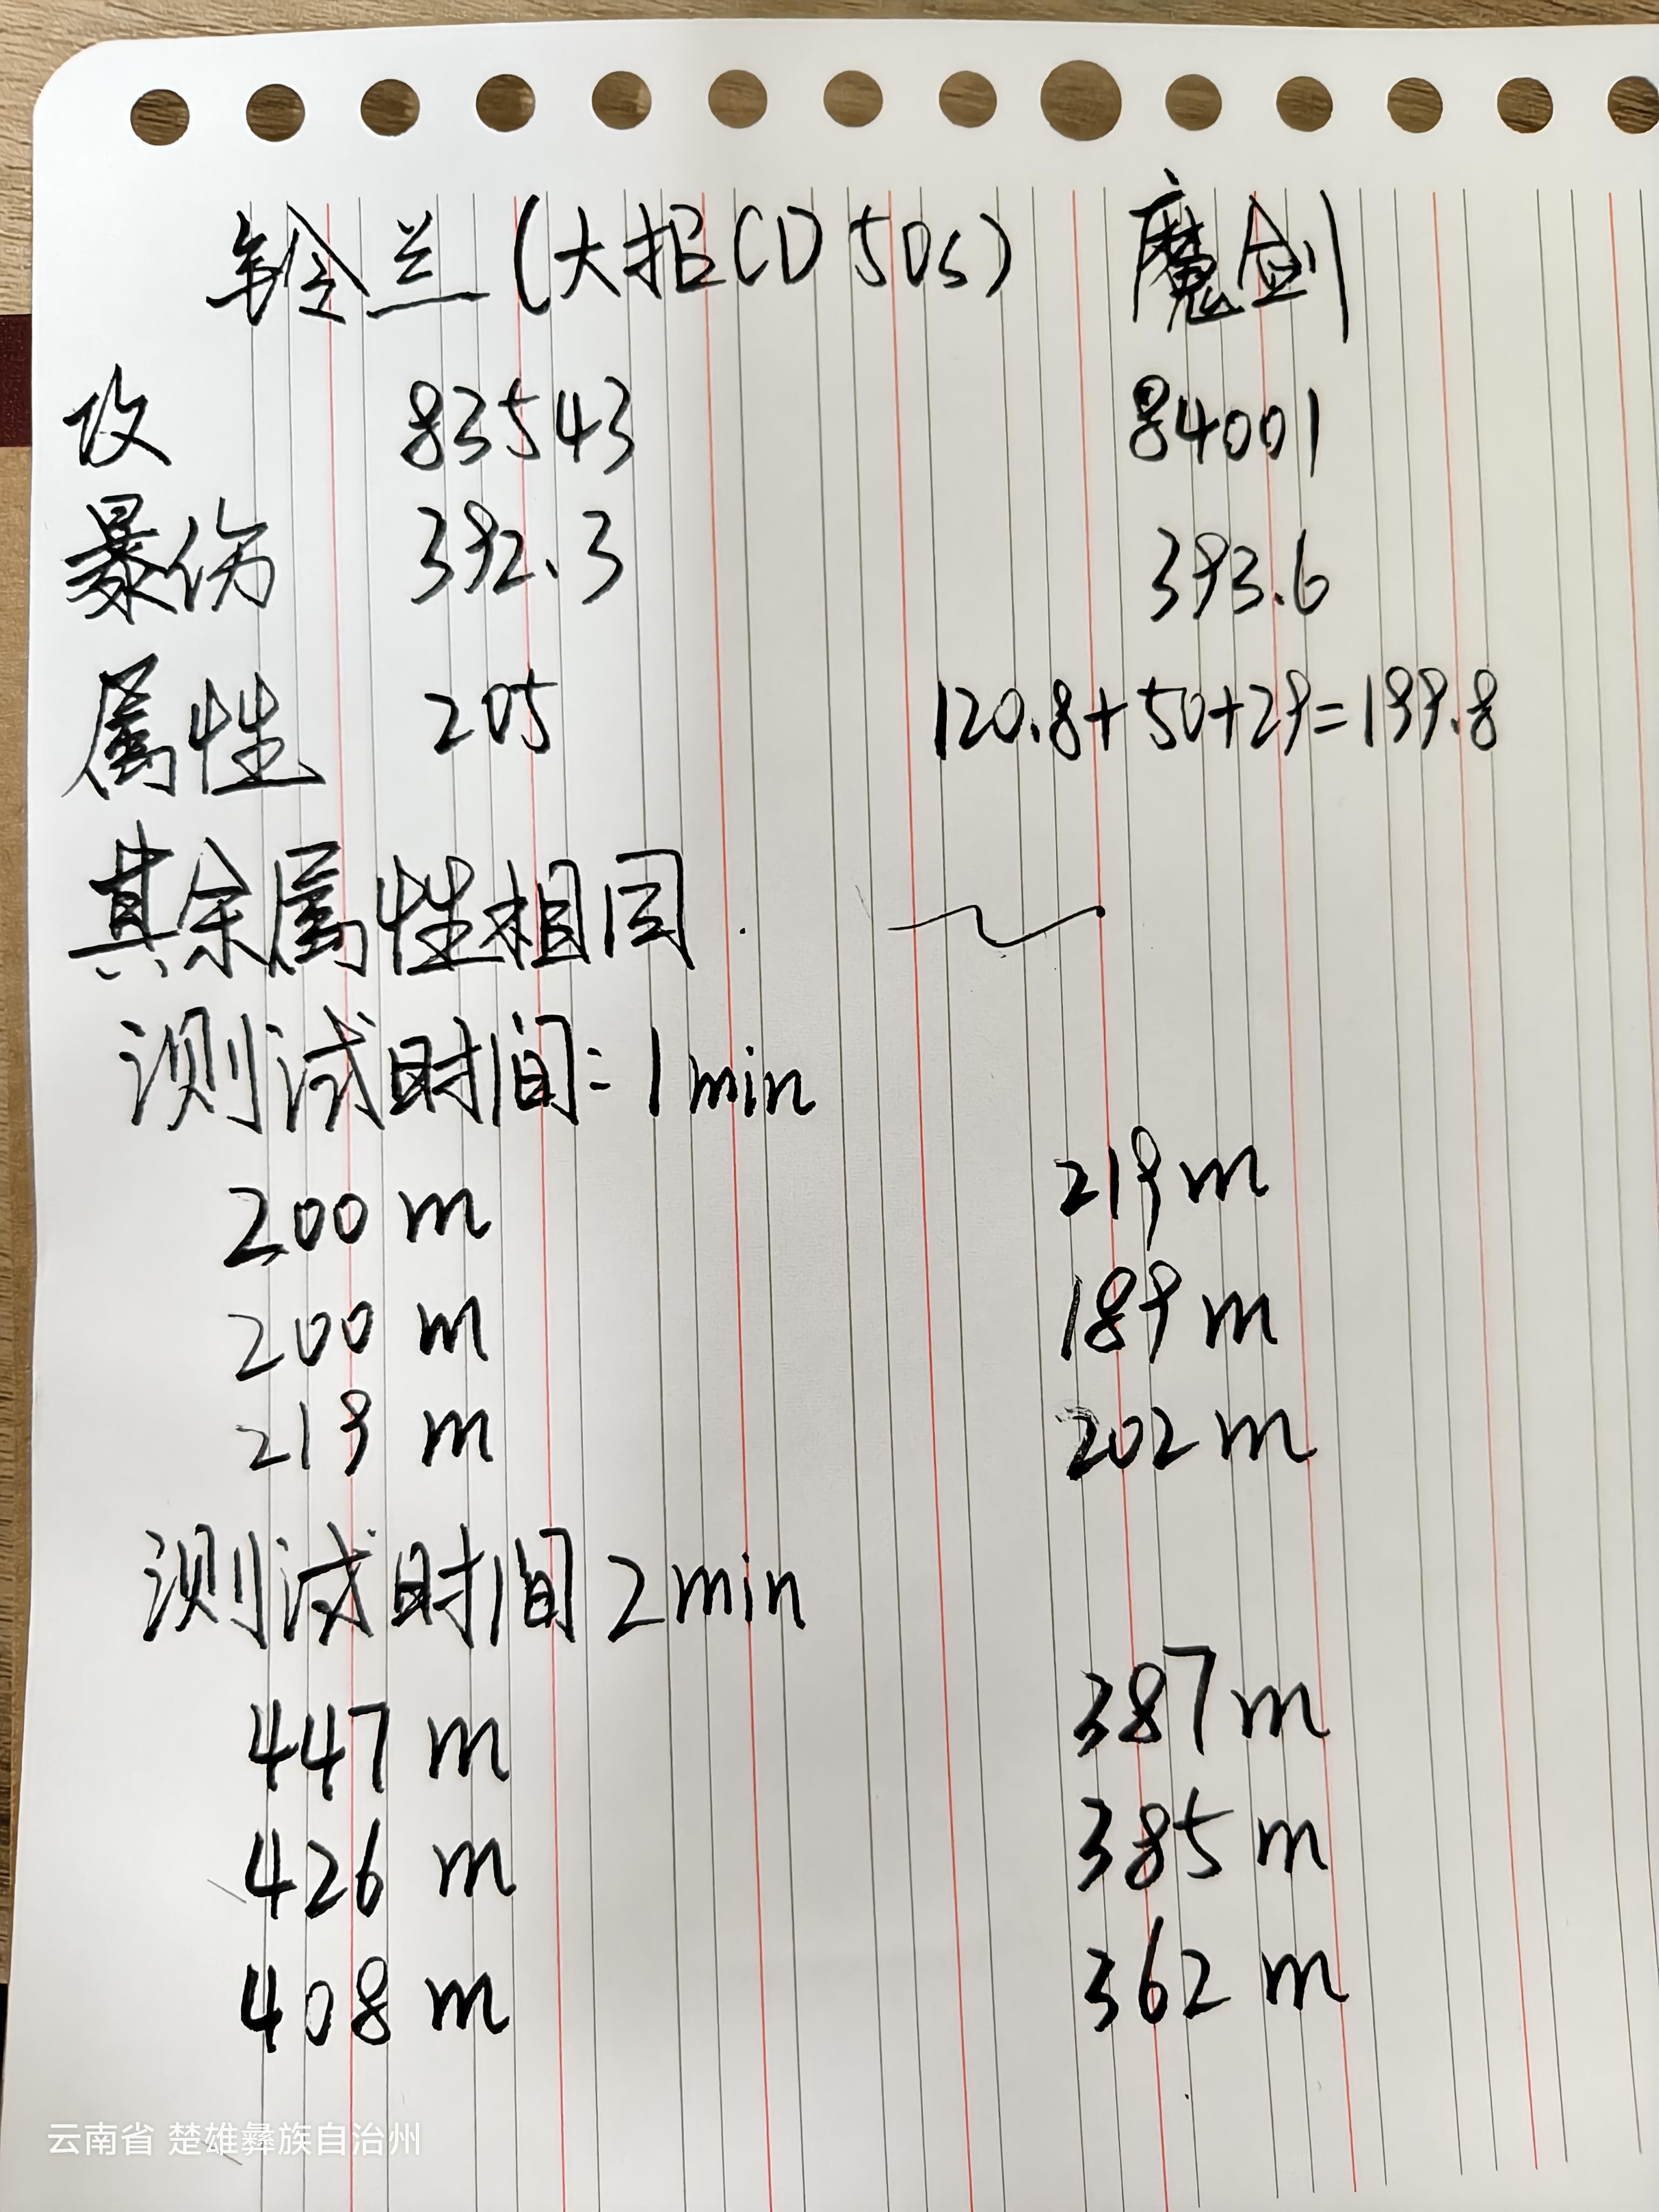 铃兰(大招CD50s) 魔剑
攻 83543 84001
暴伤 392.3 393.6
属性 205 120.8+50+29=199.8
其余属性相同.
测试时间:1min
200m 219m
200m 189m
219m 202m
测试时间2min
447m 387m
426m 385m
408m 362m
云南省 楚雄彝族自治州